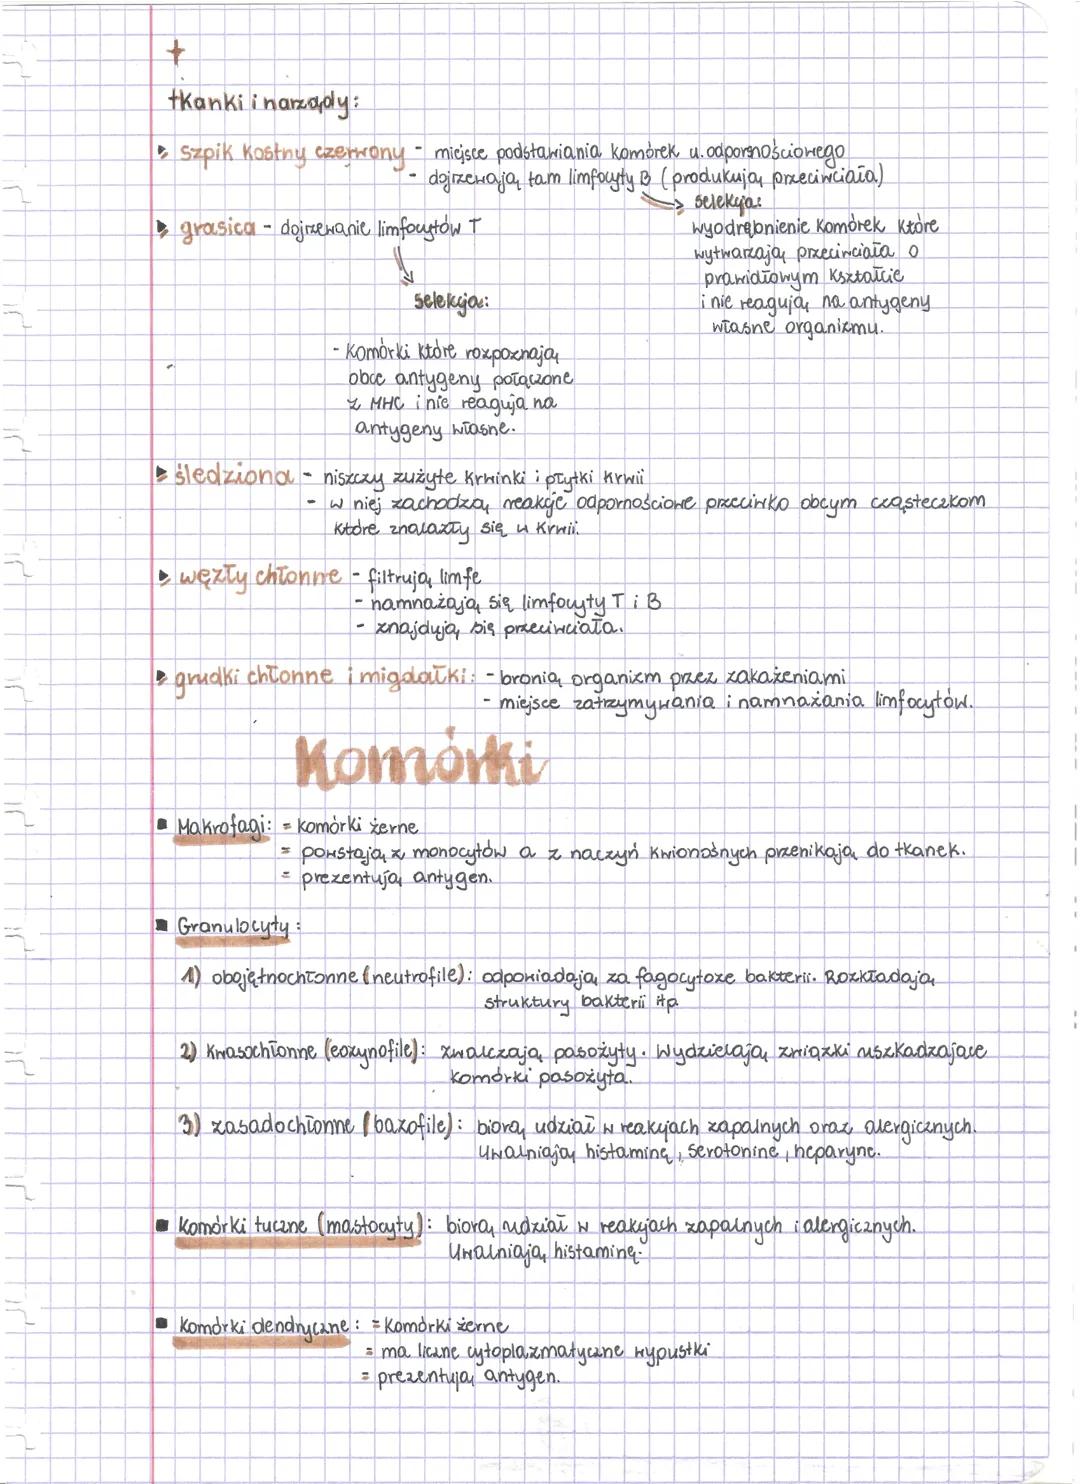 +
tkanki i narządy:
▸ szpik kostny czerwony - miejsce podstawiania komórek u.odpornościowego
- dojrzewają tam limfocyty B (produkują przeciwciała)
→ selekcja:
wyodrębnienie komórek które
wytwarzają przeciwciała o
prawidłowym kształcie
i nie reagują na antygeny
własne organizmu.
▸ grasica - dojrzewanie limfocytów T
selekcja:
- komórki które rozpoznają
obce antygeny połączone
z MHC i nie reagują na
antygeny własne.
▸ śledziona - niszczy zużyte krwinki i płytki krwii
- w niej zachodzą reakcje odpornościowe przeciwko obcym cząsteczkom
które znalazły się w krwii.
▸ węzły chłonne - filtrują limfe
- namnażają się limfocyty T i B
- znajdują się przeciwciała.
▸ grudki chłonne i migdałki: - bronią organizm przez zakażeniami
- miejsce zatrzymywania i namnażania limfocytów.
Komórki
▪ Makrofagi: = komórki żerne
= powstają z monocytów a z naczyń kwionośnych przenikają do tkanek.
= prezentują antygen.
▪ Granulocyty:
1) obojętnochłonne (neutrofile): odpowiadają za fagocytoze bakterii. Rozkładają
struktury bakterii itp
2) kwasochłonne (eozynofile): zwalczają pasożyty. Wydzielają związki uszkadzające
komórki pasożyta.
3) zasadochłonne (bazofile): biorą udział w reakcjach zapalnych oraz alergicznych.
Uwalniają histaminę, serotonine, heparyne.
▪ Komórki tuczne (mastocyty): biorą udział w reakcjach zapalnych i alergicznych.
Uwalniają histaminę.
▪ Komórki dendryczne: = Komórki żerne
= ma liczne cytoplazmatyczne wypustki
= prezentują antygen.